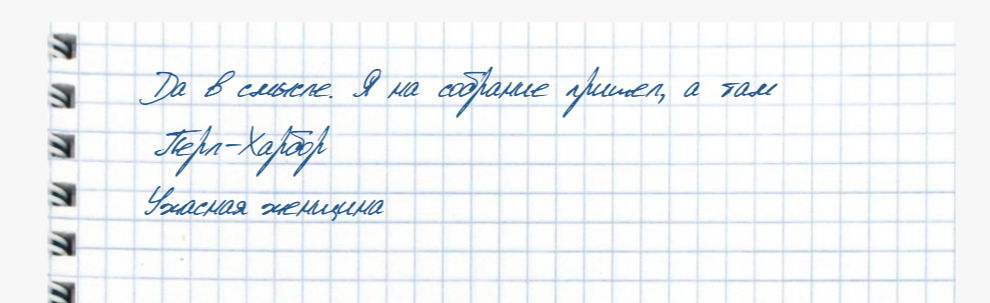 Да в смысле. Я на собрание пришел, а там
Перл-Харбор
Ужасная женщина